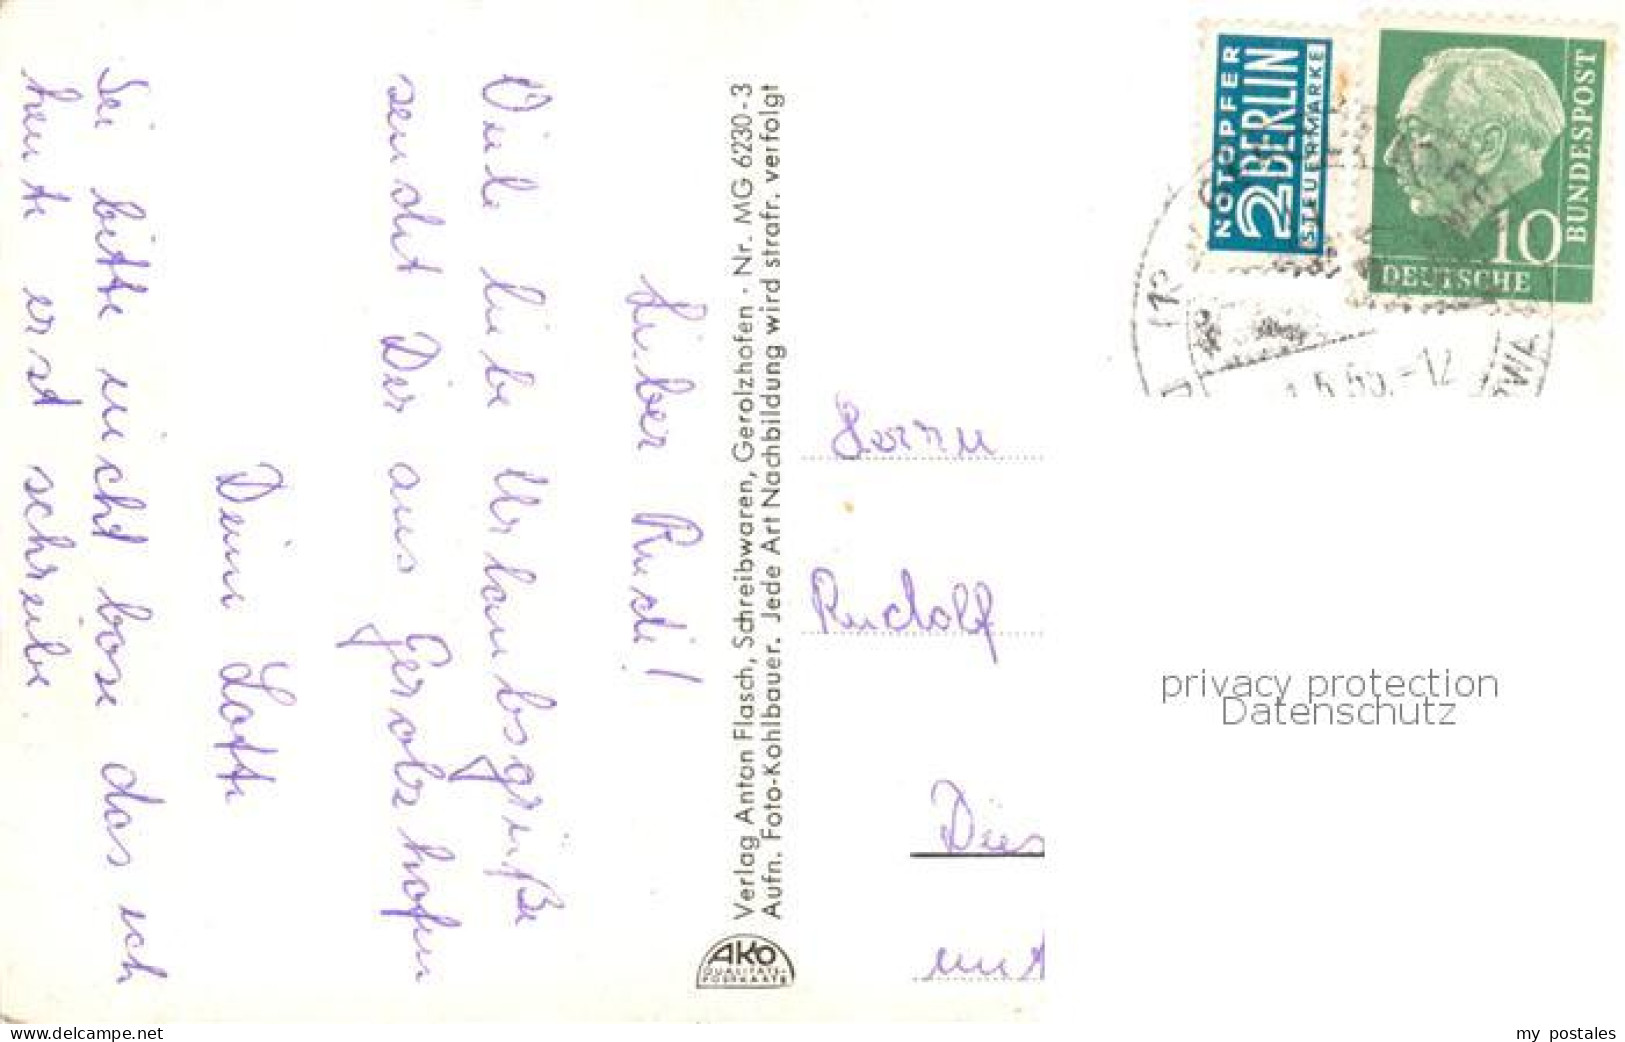 Lieber Rudi!
Viele liebe Urlaubsgrüße
sendet Dir aus Gerolzhofen
Deine Lotte
Sei bitte nicht böse das ich
heute erst schreibe.
Verlag Anton Flasch, Schreibwaren, Gerolzhofen · Nr. MG 6230-3
Aufn. Foto-Kohlbauer. Jede Art Nachbildung wird strafr. verfolgt
AKO
QUALITÄTS-
POSTKARTE
NOTOPFER
2 BERLIN
STEUERMARKE
10
DEUTSCHE
BUNDESPOST
(13
-12
Herrn
Rudolf
privacy protection
Datenschutz
www.delcampe.net
my postales